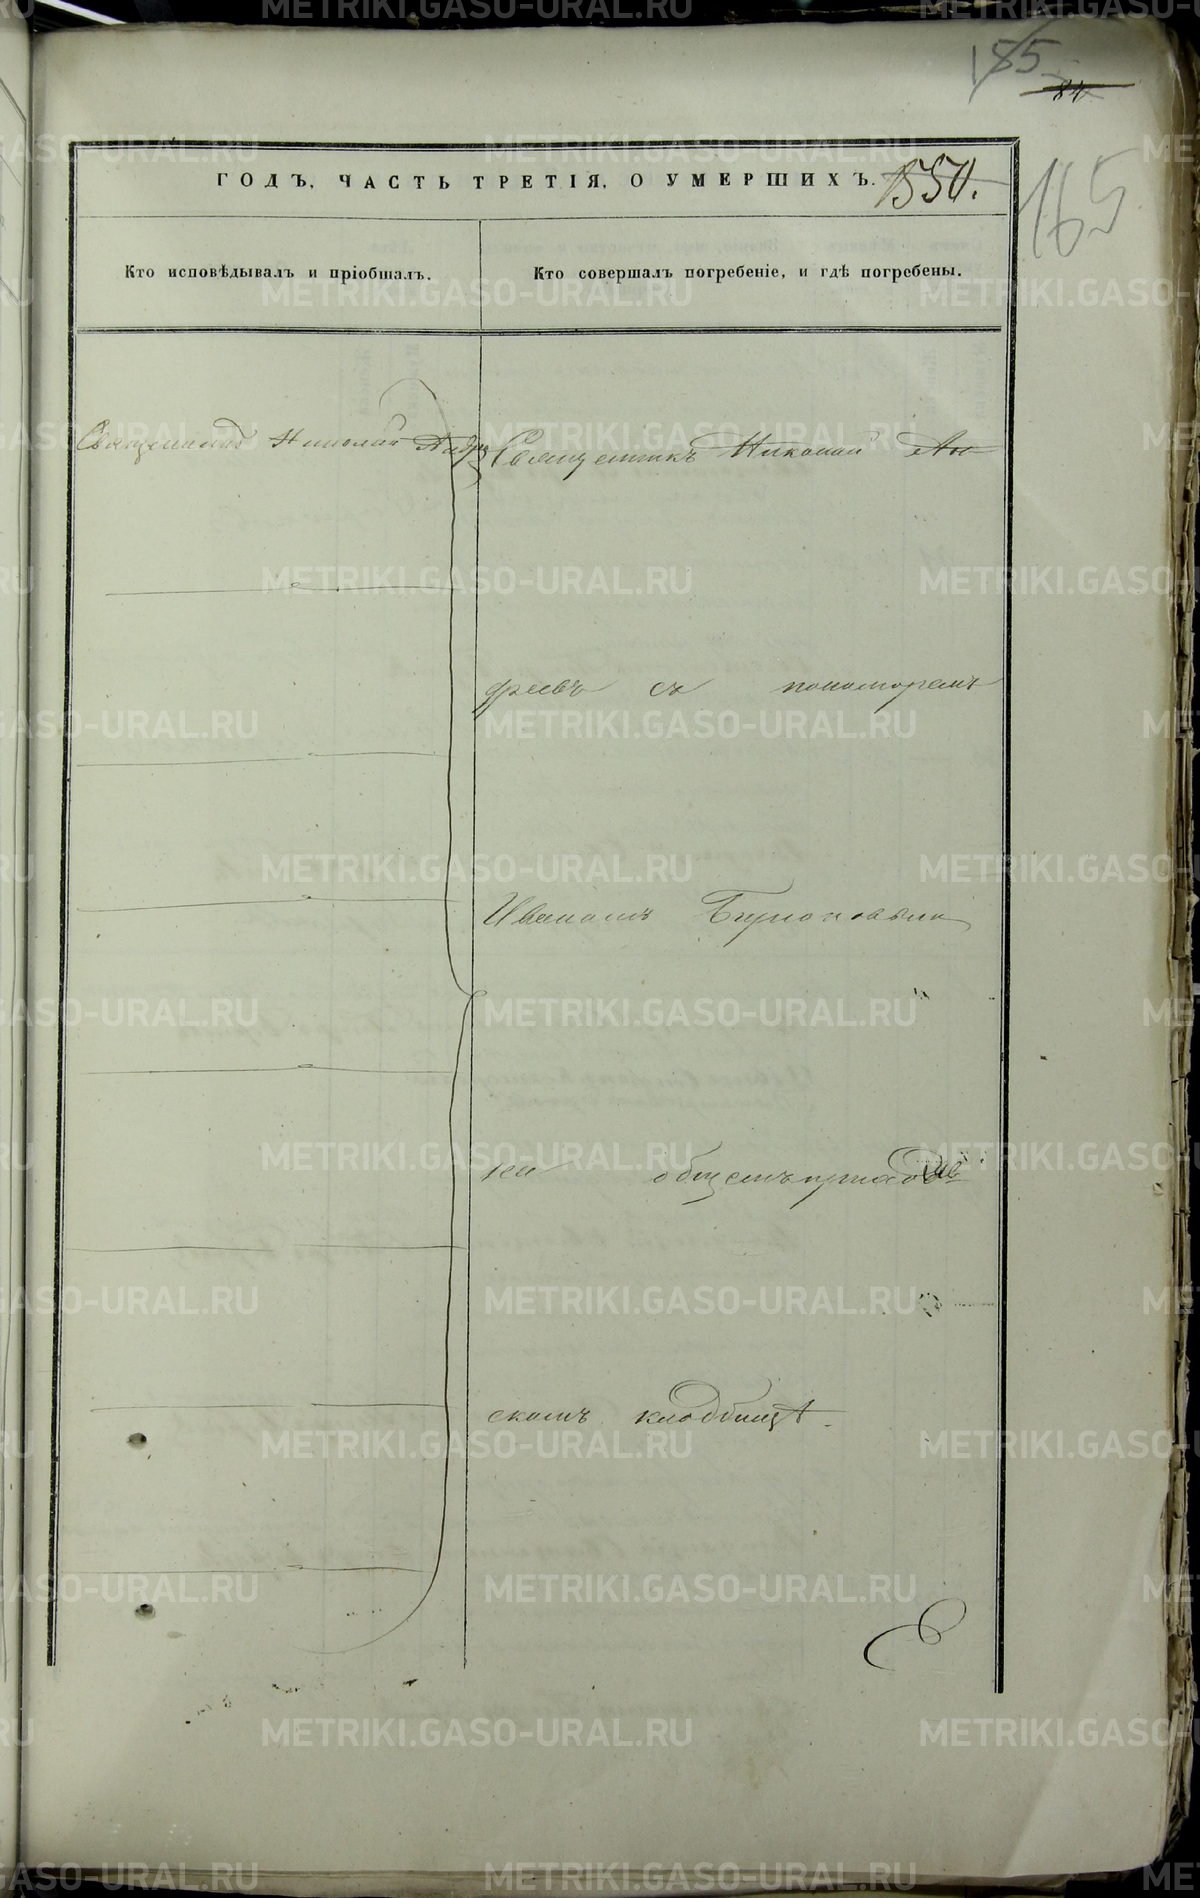 185
84
ГОДЪ, ЧАСТЬ ТРЕТІЯ, О УМЕРШИХЪ.
1550.
165
Кто исповѣдывалъ и пріобщалъ.
Кто совершалъ погребеніе, и гдѣ погребены.
Священникъ Николай Андр
Священникъ Николай Ан
дреевъ съ пономоремъ
Иваномъ
на общемъ приходо
скомъ кладбищѣ.
METRIKI.GASO-URAL.RU